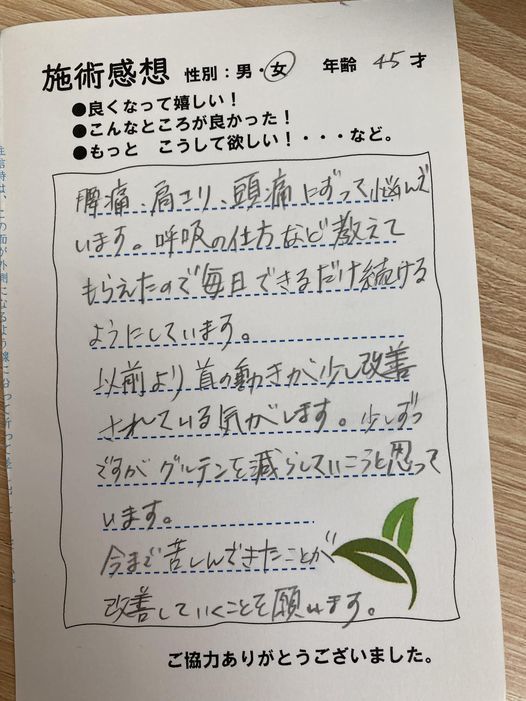 施術感想 性別：男・女 年齢 45才
●良くなって嬉しい！
●こんなところが良かった！
●もっと　こうして欲しい！・・・など。
腰痛、肩コリ、頭痛にずって悩んで
います。呼吸の仕方など教えて
もらえたので毎日できるだけ続ける
ようにしています。
以前より首の動きが少し改善
されている気がします。少しずつ
ですがグルテンを減らしていこうと思って
います。
今まで苦しんできたことが
改善していくことを願います。
ご協力ありがとうございました。